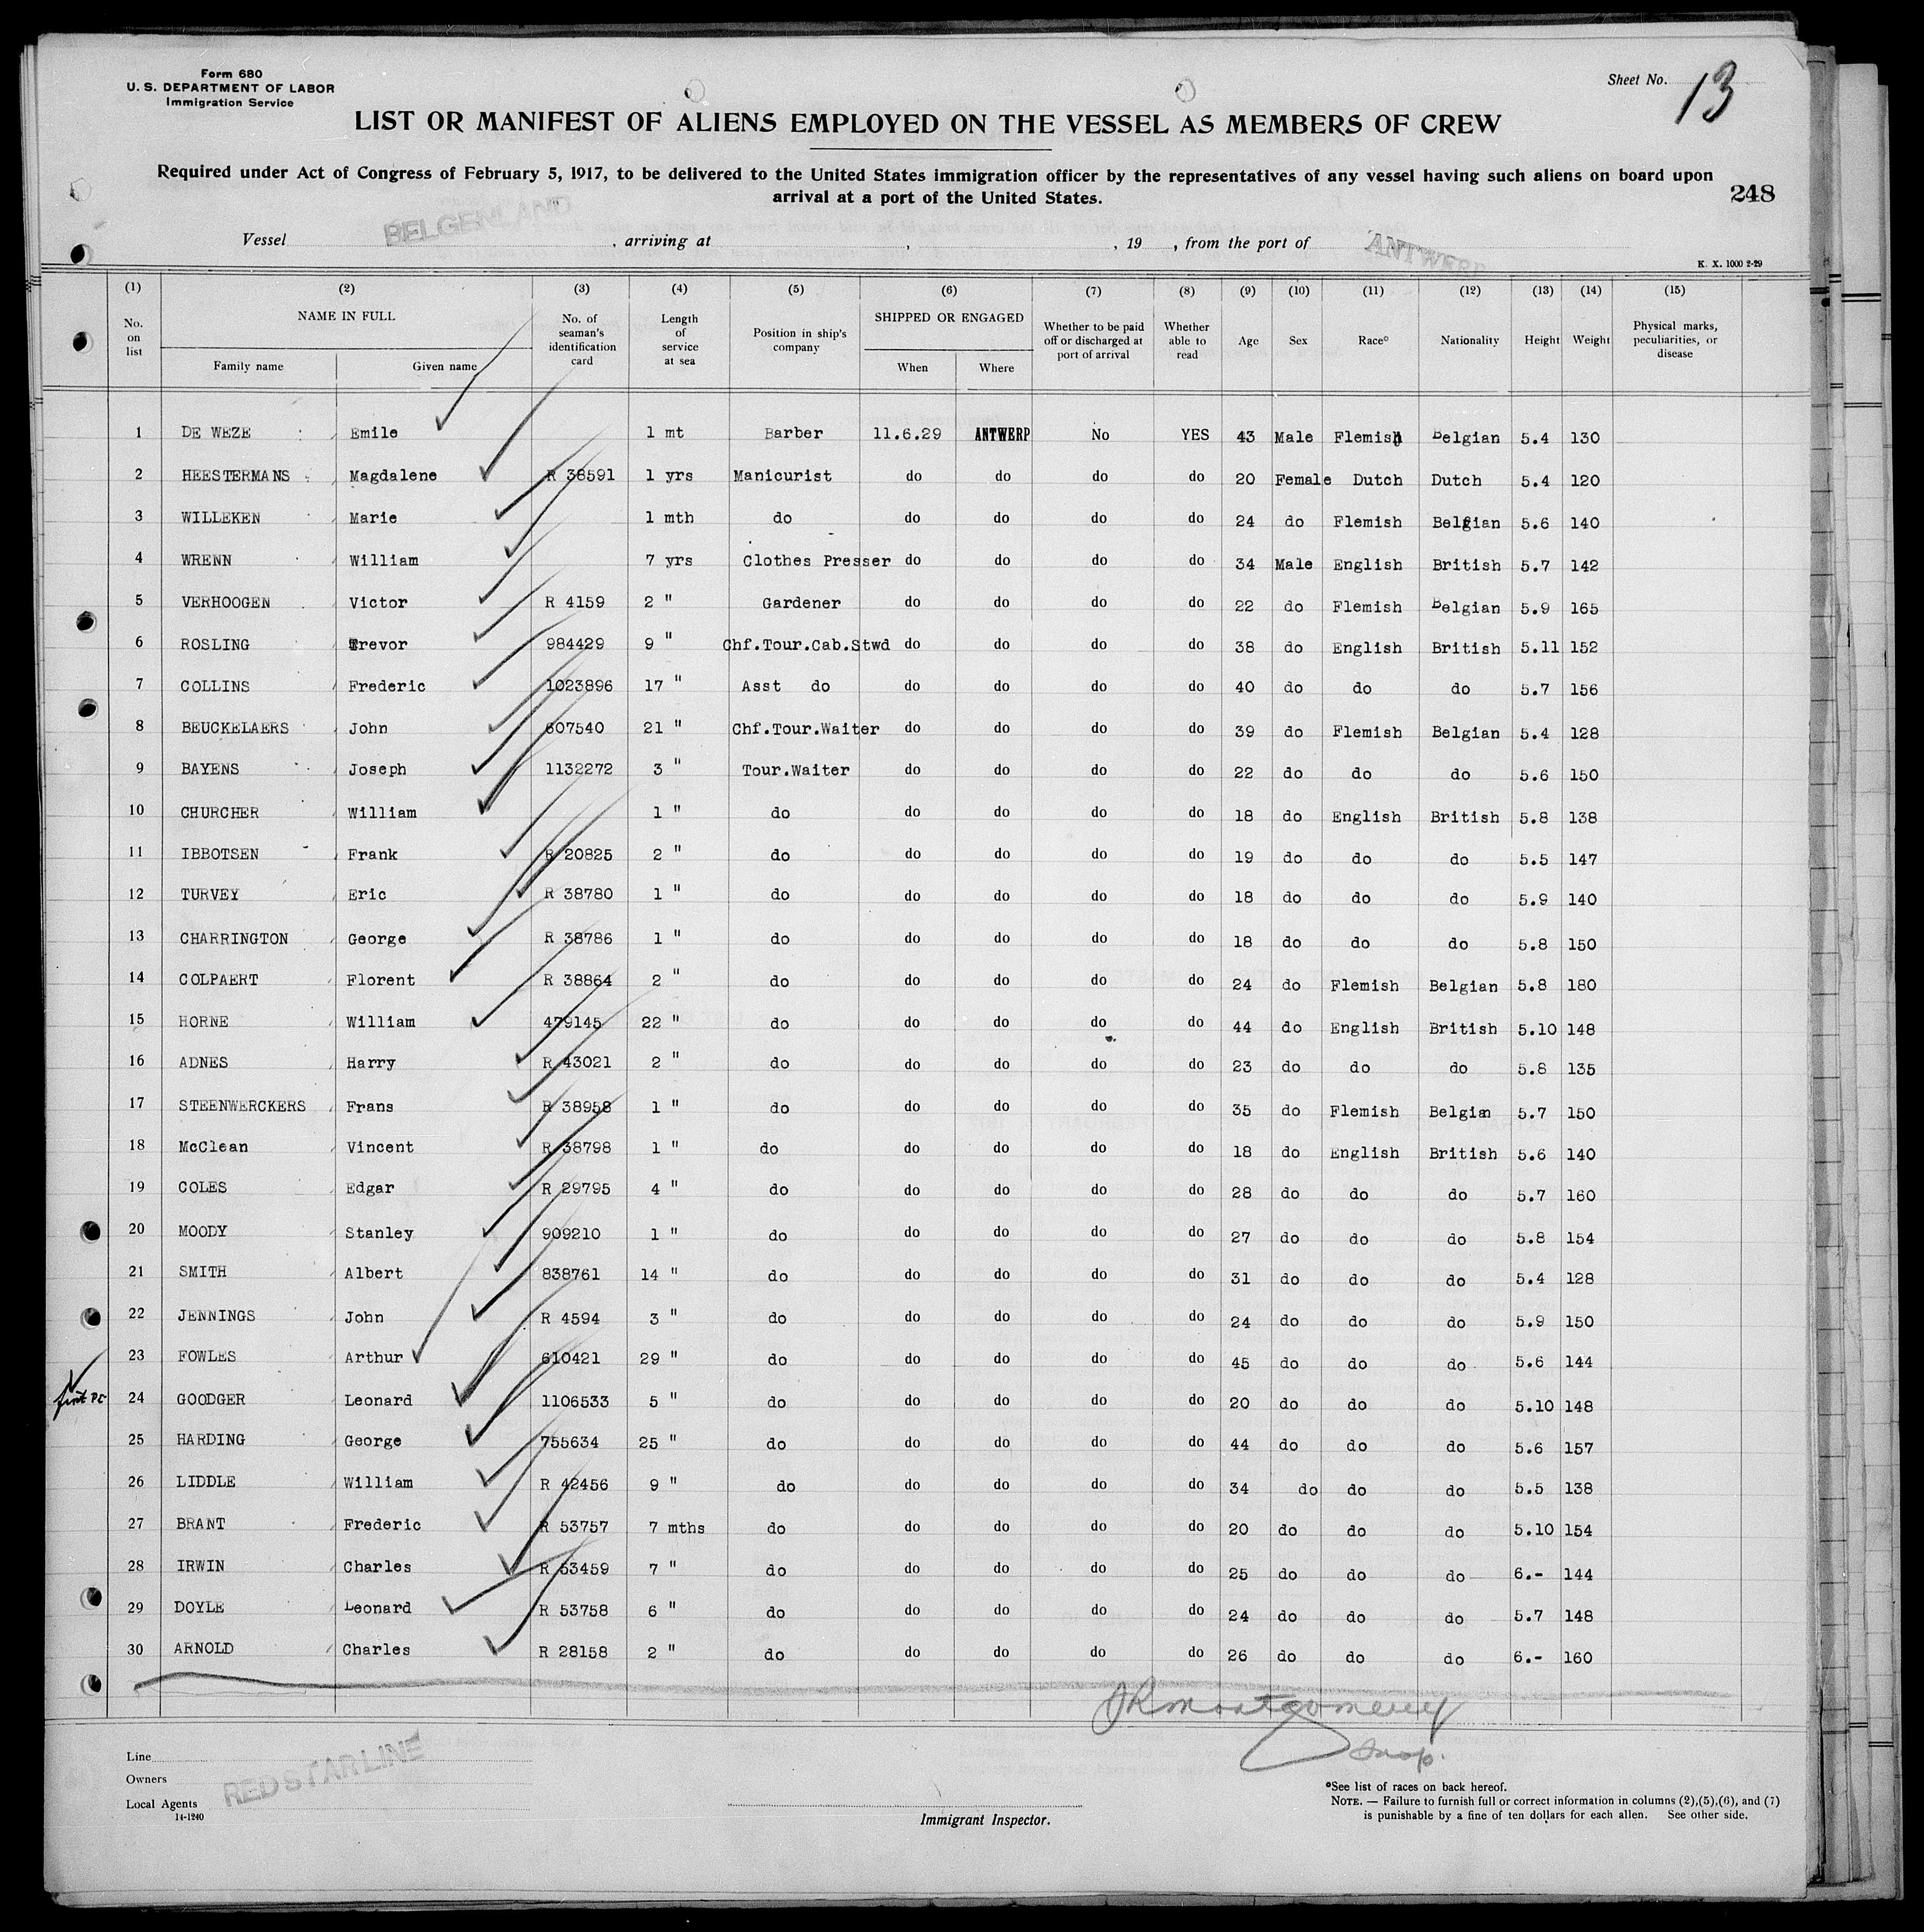 Form 680
U. S. DEPARTMENT OF LABOR
Immigration Service
Sheet No. 13
LIST OR MANIFEST OF ALIENS EMPLOYED ON THE VESSEL AS MEMBERS OF CREW
Required under Act of Congress of February 5, 1917, to be delivered to the United States immigration officer by the representatives of any vessel having such aliens on board upon
arrival at a port of the United States.
248
Vessel BELGENLAND, arriving at , , 19 , from the port of ANTWERP
K. X. 1000 2-29
(1) (2) (3) (4) (5) (6) (7) (8) (9) (10) (11) (12) (13) (14) (15)
No. on list NAME IN FULL Family name Given name No. of seaman's identification card Length of service at sea Position in ship's company SHIPPED OR ENGAGED When Where Whether to be paid off or discharged at port of arrival Whether able to read Age Sex Race° Nationality Height Weight Physical marks, peculiarities, or disease
1 DE WEZE Emile 1 mt Barber 11.6.29 ANTWERP No YES 43 Male Flemish Belgian 5.4 130
2 HEESTERMANS Magdalene R 38591 1 yrs Manicurist do do do do 20 Female Dutch Dutch 5.4 120
3 WILLEKEN Marie 1 mth do do do do do 24 do Flemish Belgian 5.6 140
4 WRENN William 7 yrs Clothes Presser do do do do 34 Male English British 5.7 142
5 VERHOOGEN Victor R 4159 2 " Gardener do do do do 22 do Flemish Belgian 5.9 165
6 ROSLING Trevor 984429 9 " Chf.Tour.Cab.Stwd do do do do 38 do English British 5.11 152
7 COLLINS Frederic 1023896 17 " Asst do do do do do 40 do do do 5.7 156
8 BEUCKELAERS John 607540 21 " Chf.Tour.Waiter do do do do 39 do Flemish Belgian 5.4 128
9 BAYENS Joseph 1132272 3 " Tour.Waiter do do do do 22 do do do 5.6 150
10 CHURCHER William 1 " do do do do do 18 do English British 5.8 138
11 IBBOTSEN Frank R 20825 2 " do do do do do 19 do do do 5.5 147
12 TURVEY Eric R 38780 1 " do do do do do 18 do do do 5.9 140
13 CHARRINGTON George R 38786 1 " do do do do do 18 do do do 5.8 150
14 COLPAERT Florent R 38864 2 " do do do do do 24 do Flemish Belgian 5.8 180
15 HORNE William 479145 22 " do do do do do 44 do English British 5.10 148
16 ADNES Harry R 43021 2 " do do do do do 23 do do do 5.8 135
17 STEENWERCKERS Frans R 38958 1 " do do do do do 35 do Flemish Belgian 5.7 150
18 McClean Vincent R 38798 1 " do do do do do 18 do English British 5.6 140
19 COLES Edgar R 29795 4 " do do do do do 28 do do do 5.7 160
20 MOODY Stanley 909210 1 " do do do do do 27 do do do 5.8 154
21 SMITH Albert 838761 14 " do do do do do 31 do do do 5.4 128
22 JENNINGS John R 4594 3 " do do do do do 24 do do do 5.9 150
23 FOWLES Arthur 610421 29 " do do do do do 45 do do do 5.6 144
24 GOODGER Leonard 1106533 5 " do do do do do 20 do do do 5.10 148
25 HARDING George 755634 25 " do do do do do 44 do do do 5.6 157
26 LIDDLE William R 42456 9 " do do do do do 34 do do do 5.5 138
27 BRANT Frederic R 53757 7 mths do do do do do 20 do do do 5.10 154
28 IRWIN Charles R 53459 7 " do do do do do 25 do do do 6.- 144
29 DOYLE Leonard R 53758 6 " do do do do do 24 do do do 5.7 148
30 ARNOLD Charles R 28158 2 " do do do do do 26 do do do 6.- 160
JRMontgomery
Insp.
Line
Owners
Local Agents
RED STAR LINE
14-1240
Immigrant Inspector.
°See list of races on back hereof.
NOTE. — Failure to furnish full or correct information in columns (2),(5),(6), and (7)
is punishable by a fine of ten dollars for each alien. See other side.